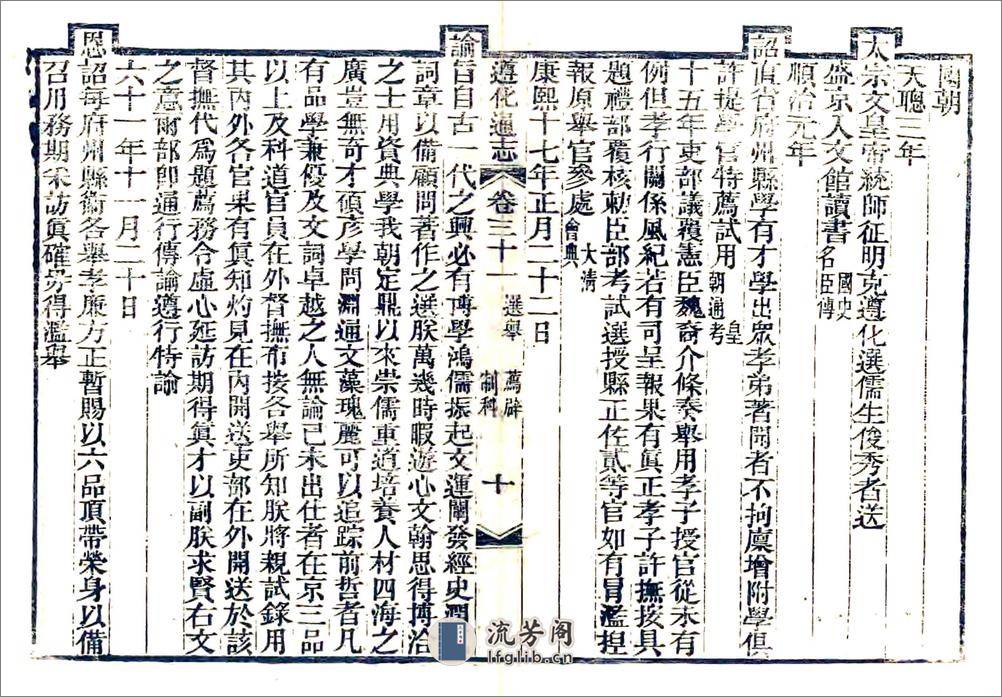 國朝
天聰三年
太宗文皇帝統師征明克遵化選儒生俊秀者送
盛京入文館讀書國史名臣傳
順治元年
詔直省府州縣學有才學出眾孝弟著聞者不拘廩增附學俱
許提學官特薦試用皇朝通考
十五年吏部議覆憲臣魏裔介條奏舉用孝子授官從未有
例但孝行關係風紀若有司呈報果有眞正孝子許撫按具
題禮部覆核勅臣部考試選授縣正佐貳等官如有冒濫捏
報原舉官參處大清會典
康熙十七年正月二十二日
遵化通志 卷三十一 選舉 薦辟 制科 十
諭旨自古一代之興必有博學鴻儒振起文運闡發經史潤色
詞章以備顧問著作之選朕萬幾時暇遊心文翰思得博洽
之士用資典學我朝定鼎以來崇儒重道培養人材四海之
廣豈無奇才碩彥學問淵通文藻瑰麗可以追踪前哲者凡
有品學兼優及文詞卓越之人無論已未出仕者在京三品
以上及科道官員在外督撫布按各舉所知朕將親試錄用
其內外各官果有眞知灼見在內開送吏部在外開送於該
督撫代爲題薦務令虛心延訪期得眞才以副朕求賢右文
之意爾部卽通行傳諭遵行特諭
六十一年十一月二十日
恩詔每府州縣衞各舉孝廉方正暫賜以六品頂帶榮身以備
召用務期采訪眞確毋得濫舉
流芳阁
lfglib.cn